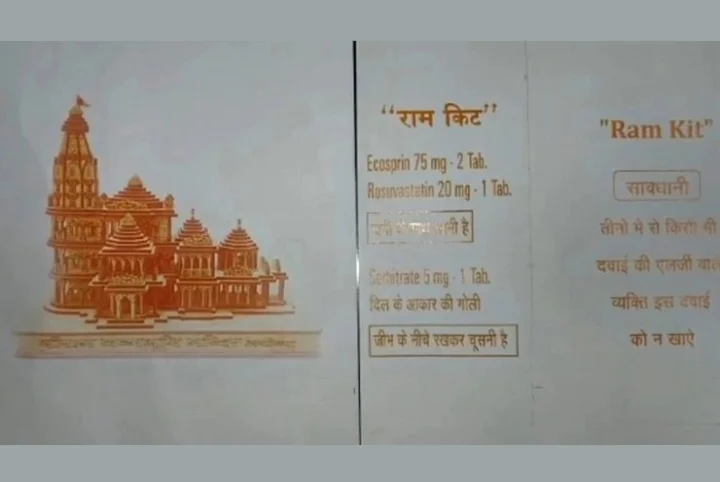 “राम किट”
Ecosprin 75 mg - 2 Tab.
Rosuvastatin 20 mg - 1 Tab.
है
Sorbitrate 5 mg - 1 Tab.
दिल के आकार की गोली
जीभ के नीचे रखकर चूसनी है
"Ram Kit"
सावधानी
तीनो मे से किसी भी
दवाई की एलर्जी
व्यक्ति इस दवाई
को न खाऐ